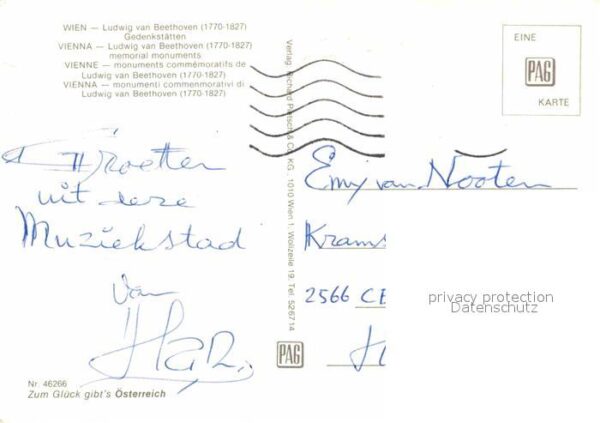 WIEN — Ludwig van Beethoven (1770-1827)
Gedenkstätten
VIENNA — Ludwig van Beethoven (1770-1827)
memorial monuments
VIENNE — monuments commémoratifs de
Ludwig van Beethoven (1770-1827)
VIENNA — monumenti commemorativi di
Ludwig van Beethoven (1770-1827)
Groetten
uit deze
Muziekstad
van
Nr. 46266
Zum Glück gibt's Österreich
Verlag Richard Pietsch & Co. KG., 1010 Wien 1, Wollzeile 19, Tel. 526714
PAG
EINE
PAG
KARTE
Emy van Nooten
Krams
2566 CE
privacy protection
Datenschutz